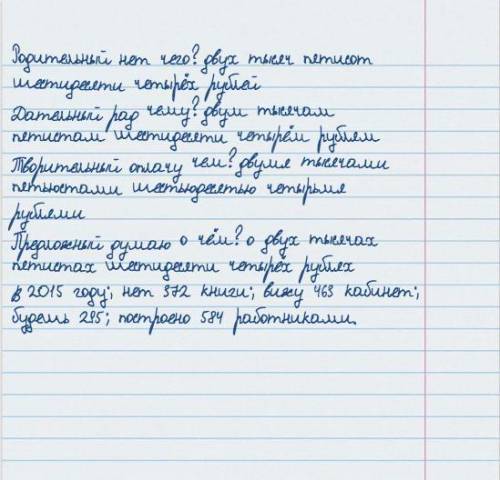 Родительный нет чего? двух тысяч петисот
шестидесяти четырёх рублей
Дательный рад чему? двум тысячам
петистам шестидесяти четырём рублем
Творительный оплачу чем? двумя тысячами
петьюстами шестьюдесятью четырьмя
рублеми
Предложный думаю о чём? о двух тысячах
петистах шестидесяти четырёх рублях
в 2015 году; нет 372 книги; вижу 463 кабинет;
будешь 295; построено 584 работниками.